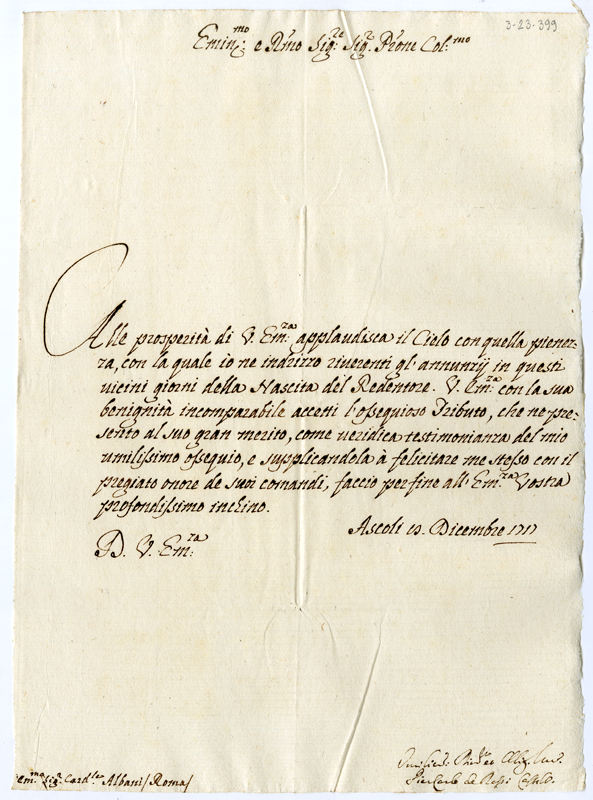 3-23-399
Emin.mo e Rmo Sig.re Sig.r Prone Col.mo
Alle prosperità di V. Em.za applaudisca il Cielo con quella pienez-
za, con la quale io ne indrizzo riverenti gl' annunzij in questi
vicini giorni della Nascita del Redentore. V. Em.za con la sua
benignità incomparabile accetti l'ossequioso Tributo, che ne pre-
sento al suo gran merito, come veridica testimonianza del mio
umilissimo ossequio, e supplicandola à felicitare me stesso con il
pregiato onore de suoi comandi, faccio per fine all' Em.za Vostra
profondissimo inchino.
Ascoli 19. Dicembre 1717
D. V. Em.za
Em.mo Sig.r Card.le Albani / Roma /
Pier Carlo de Rossi